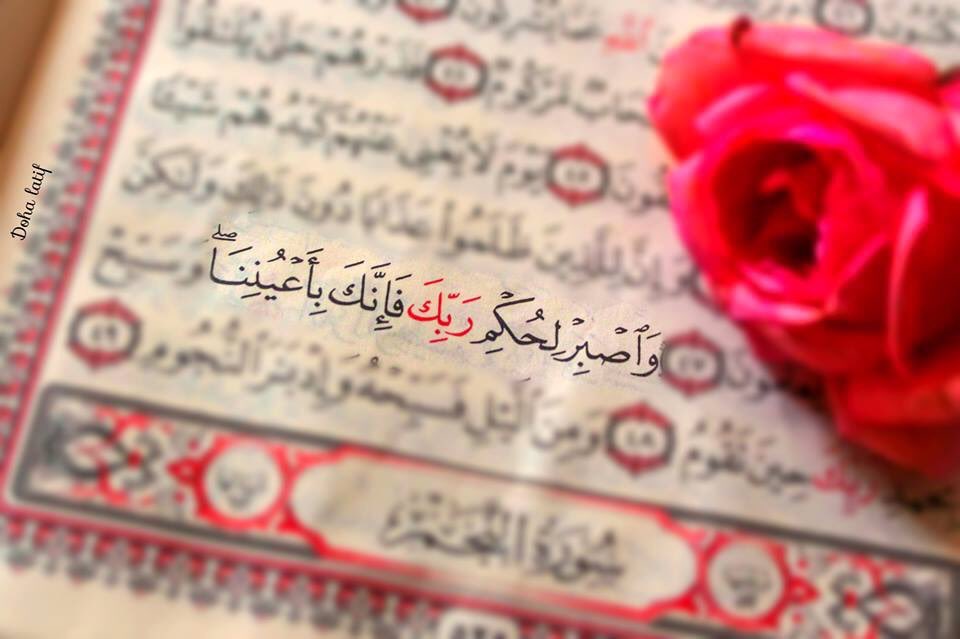 ٱللَّهِ عَمَّا يُشْرِكُونَ
مَّرْكُومٌ ٤٤ فَذَرْهُمْ حَتَّىٰ يُلَٰقُوا۟
٤٥ يَوْمَ لَا يُغْنِى عَنْهُمْ كَيْدُهُمْ شَيْـًٔا
وَإِنَّ لِلَّذِينَ ظَلَمُوا۟ عَذَابًا دُونَ ذَٰلِكَ وَلَٰكِنَّ
٤٧ وَٱصْبِرْ لِحُكْمِ رَبِّكَ فَإِنَّكَ بِأَعْيُنِنَا ۖ وَسَبِّحْ
رَبِّكَ حِينَ تَقُومُ ٤٨ وَمِنَ ٱلَّيْلِ فَسَبِّحْهُ وَإِدْبَٰرَ ٱلنُّجُومِ ٤٩
سُورَةُ النَّجْمِ
Doha latif